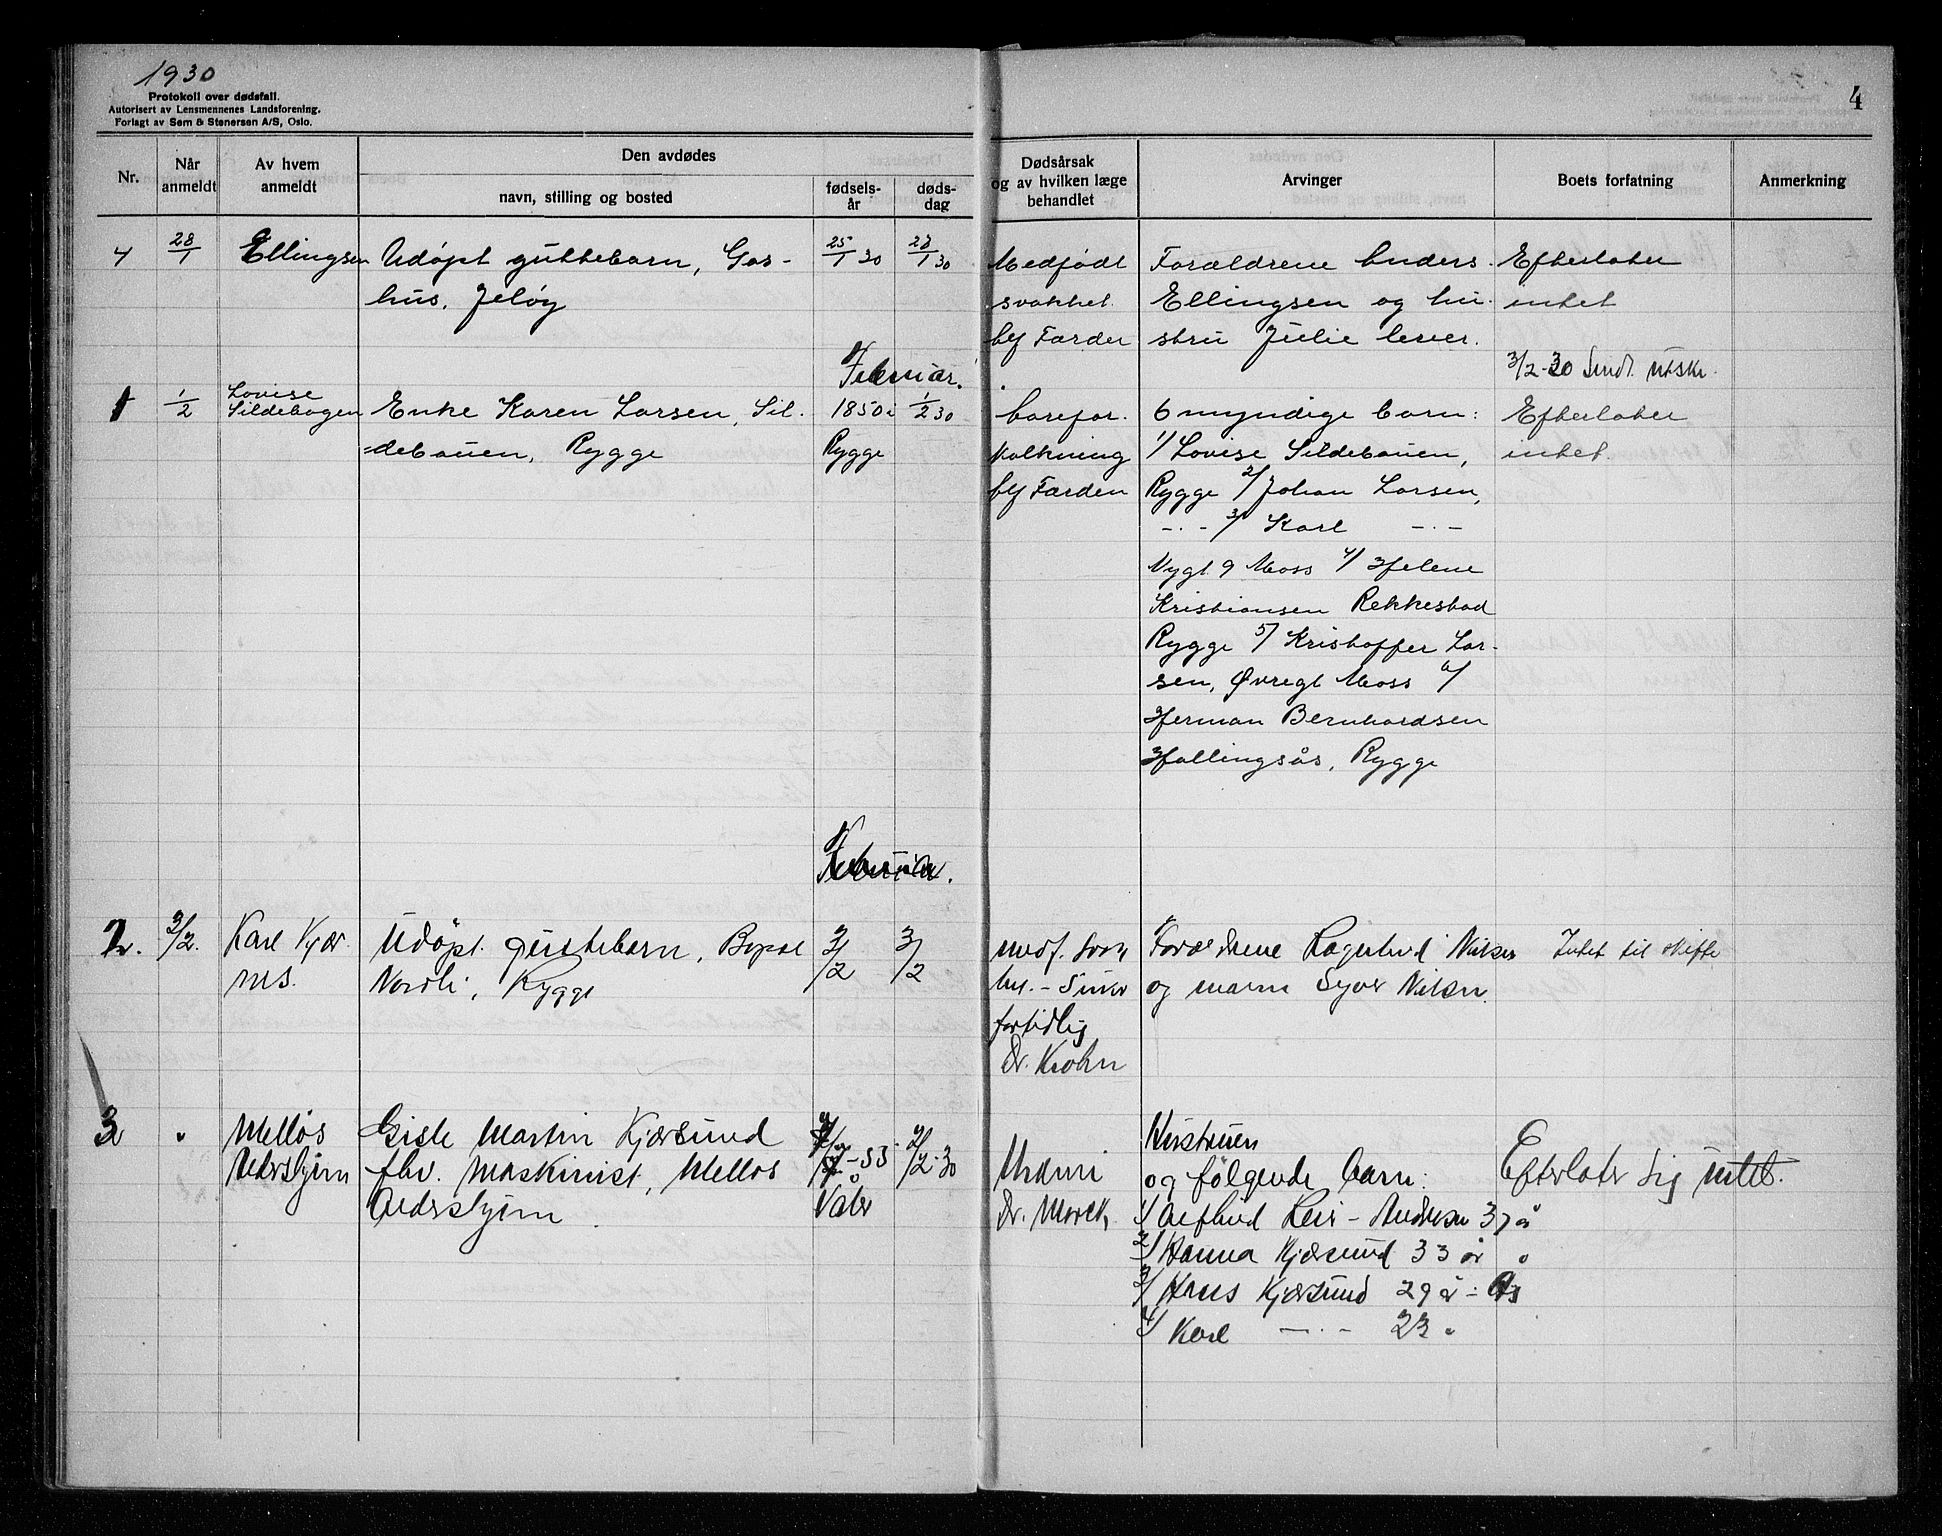 1930
Protokoll over dødsfall.
Autorisert av Lensmennenes Landsforening.
Forlagt av Sem & Stenersen A/S, Oslo.
4
Nr.
Når anmeldt
Av hvem anmeldt
Den avdødes
navn, stilling og bosted
fødsels-år
døds-dag
Dødsårsak og av hvilken læge behandlet
Arvinger
Boets forfatning
Anmerkning
4 28/1 Ellingsen Udøpt guttebarn, Gas- 25/1 30 28/1 30 Medfødt Forældrene Anders Efterlater
hus, Jeløy svakhet Ellingsen og hu- intet
by Farder stru Julie lever.
Februar. 3/2-30 Sendt utskr.
1 1/2 Lovise
Sildebogen Enke Karen Larsen, Sil- 1850 i 1/2 30 Åarefor- 6 myndige barn: Efterlater
debauen, Rygge Rygge kalkning 1/ Lovise Sildebauen, intet.
by Farden Rygge 2/ Johan Larsen,
-.- 3/ Karl -.-
Nygt. 9 Moss 4/ Helene
Kristiansen Rekkestad
Rygge 5/ Kristoffer Lar-
sen, Øvregt Moss 6/
Herman Bernhardsen
Hallingsås, Rygge
Februar.
2. 3/2. Karl Kjær Udøpt guttebarn, 3/2 3/2 medf. svak Forældrene Ragnhild Nilsen Intet til skifte
ns. Nordli, Rygge het. - og mann Syver Nilsen.
fortidlig
Dr. Krohn
3 " Melløs Gisle Martin Kjærsund -55 2/2-30 Hustruen
fhv. Maskinist, Melløs og følgende barn: Efterlater sig intet.
Våler Dr. 1/ - Andresen 37 å
2/ Hanna Kjærsund 33 år "
3/ Hans Kjærsund 29 år - Ås
4/ Karl -.- 23 "